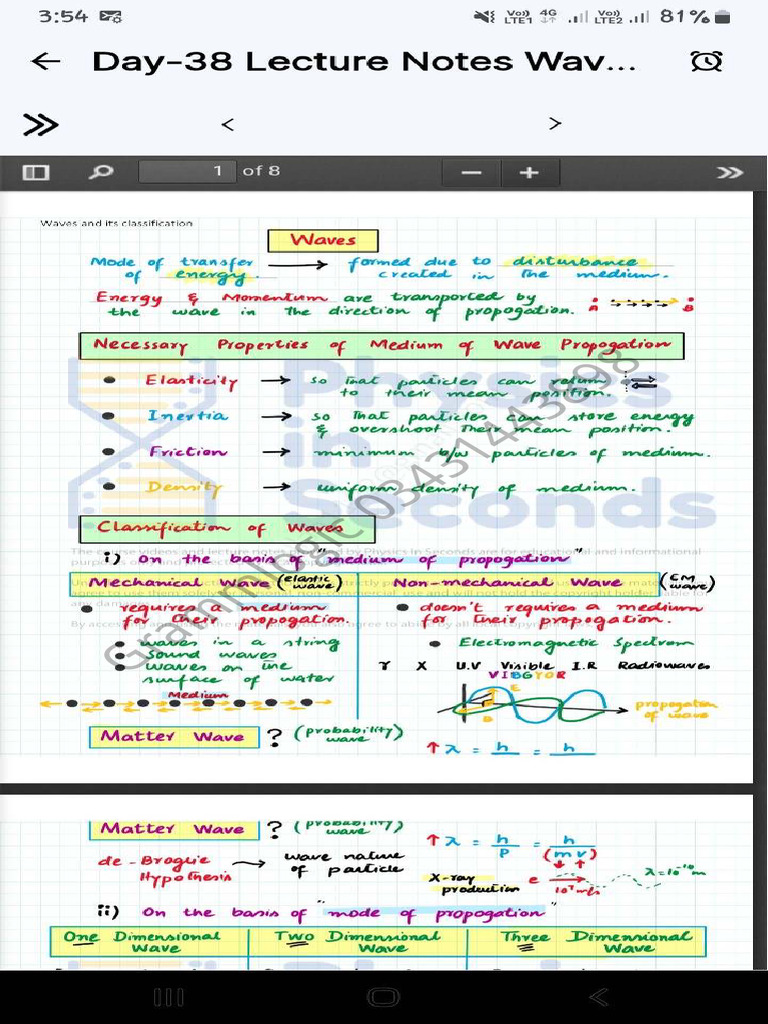 3:54
Vo)) LTE1 4G Vo)) LTE2 81%
Day-38 Lecture Notes Wav...
1 of 8
Waves and its classification
Waves
Mode of transfer of energy. → formed due to disturbance created in the medium.
Energy & Momentum are transported by
the wave in the direction of propogation.
A B
Necessary Properties of Medium of Wave Propogation
Elasticity → so that particles can return
to their mean position.
Inertia → so that particles can store energy
& overshoot their mean position.
Friction → minimum b/w particles of medium.
Density → uniform density of medium.
Physics
in
Seconds
Grammlogic 03431443898
Classification of Waves
i) On the basis of "medium of propogation"
Mechanical Wave (elastic wave)
Non-mechanical Wave (EM wave)
requires a medium
for their propogation.
doesn't requires a medium
for their propogation.
waves in a string
sound waves
waves on the
surface of water
Medium
Electromagnetic Spectrum
γ X U.V Visible I.R Radiowaves
VIBGYOR
E
B
propogation
of wave
Matter Wave ? (probability wave)
↑ λ = h = h
Matter Wave ? (probability wave)
↑ λ = h/p = h/(mv)
de-Broglie
Hypothesis → wave nature
of particle
X-ray
production
e
λ=10⁻¹⁰m
ii) On the basis of "mode of propogation"
One Dimensional
Wave
Two Dimensional
Wave
Three Dimensional
Wave